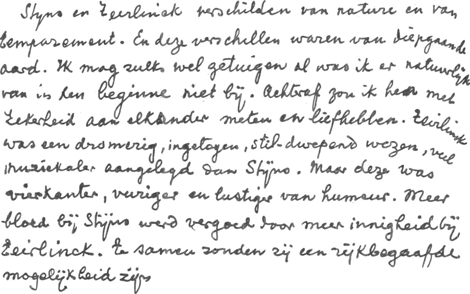 Stijns en Zeirlinck verschilden van nature en van
temparement. En deze verschillen waren van diepgaande
aard. Ik mag zulks wel getuigen al was ik er natuurlijk
van in den beginne niet bij. Achteraf zou ik hen met
zekerheid aan elkander meten en liefhebben. Zeirlinck
was een dromerig, ingetogen, stil-dwepend wezen, veel
muzikaler aangelegd dan Stijns. Maar deze was
vierkanter, vuriger en lustiger van humeur. Meer
bloed bij Stijns werd vergoed door meer innigheid bij
Zeirlinck. Te samen zonden zij een rijkbegaafde
mogelijkheid zijn